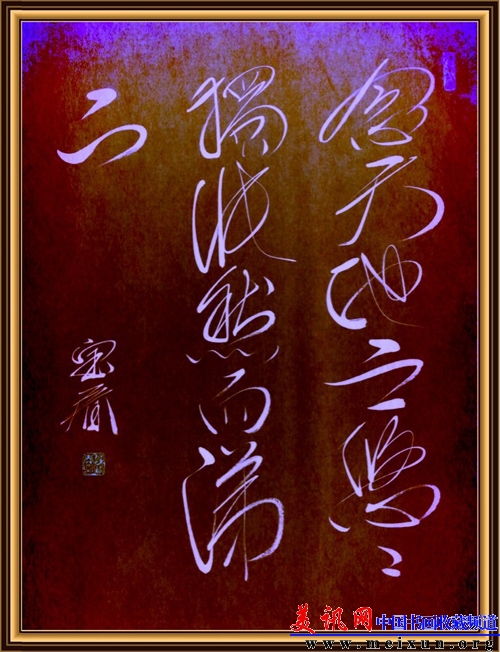 念天地之悠悠
獨愴然而涕
下
美讯网 中国书画收藏频道
www.meixun.org